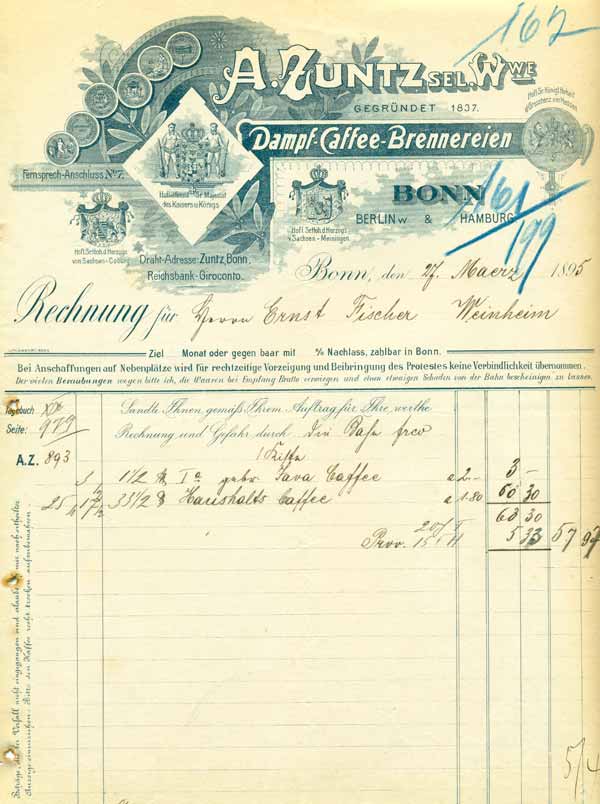 162
A. ZUNTZ SEL. WWE
GEGRÜNDET 1837.
Hofl. Sr. Königl. Hoheit
d. Grossherz. von Hessen.
Dampf-Caffee-Brennereien
Fernsprech-Anschluss No 7.
Hoflieferant Sr. Majestät
des Kaisers u. Königs
BONN
BERLIN W & HAMBURG
161
199
Hofl. Sr. Hoh. d. Herzogs
von Sachsen-Coburg
Hofl. Sr. Hoh. d. Herzogs
v. Sachsen-Meiningen
Draht-Adresse: Zuntz, Bonn.
Reichsbank-Giroconto.
Bonn, den 27. Maerz 1895
Rechnung für Herrn Ernst Fischer Weinheim
Ziel Monat oder gegen baar mit % Nachlass, zahlbar in Bonn.
Bei Anschaffungen auf Nebenplätze wird für rechtzeitige Vorzeigung und Beibringung des Protestes keine Verbindlichkeit übernommen.
Der vielen Beraubungen wegen bitte ich, die Waaren bei Empfang Brutto verwiegen und einen etwaigen Schaden von der Bahn bescheinigen zu lassen.
Tagebuch XIX
Sandte Ihnen, gemäß Ihrem Auftrag, für Ihre werthe
Seite: 979
Rechnung und Gefahr durch die Bahn frco
A.Z. 893
1 Kiste
1 1/2 Ia gebr. Java Caffee a 2.- 3 -
33 1/2 Haushalts Caffee a 1.80 60 30
63 30
Prov. 5 33 57 97
5/4